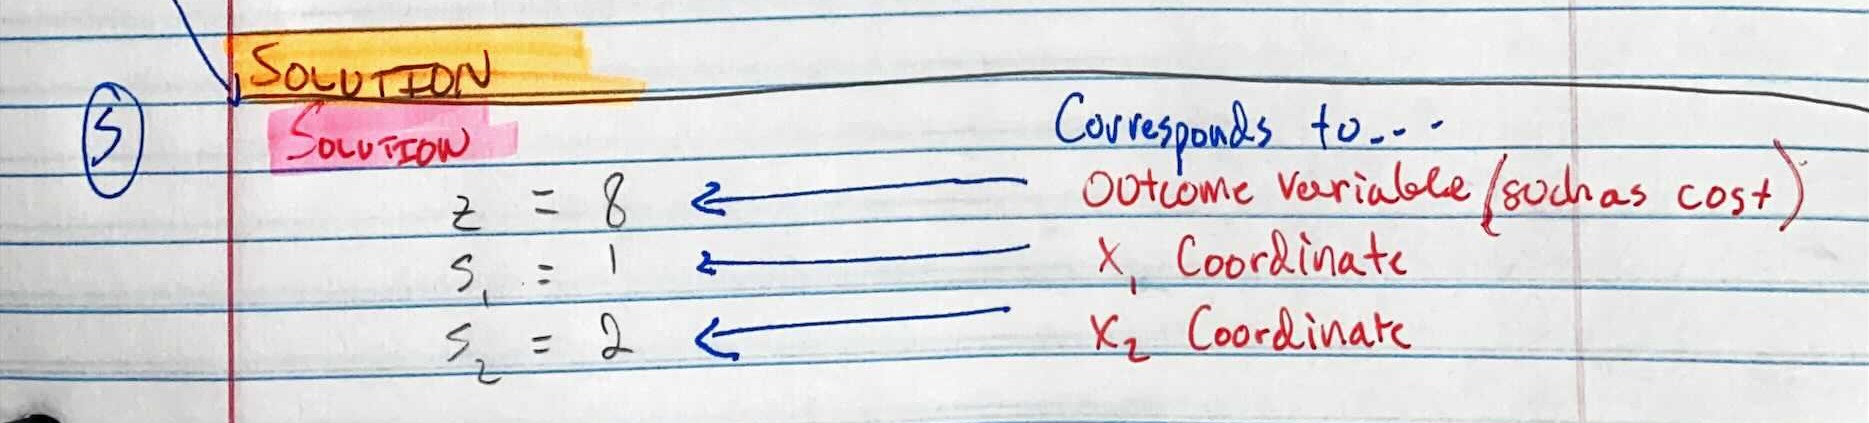 SOLUTION
5 SOLUTION Corresponds to...
z = 8 ← Outcome variable (such as cost)
S₁ = 1 ← X₁ Coordinate
S₂ = 2 ← X₂ Coordinate